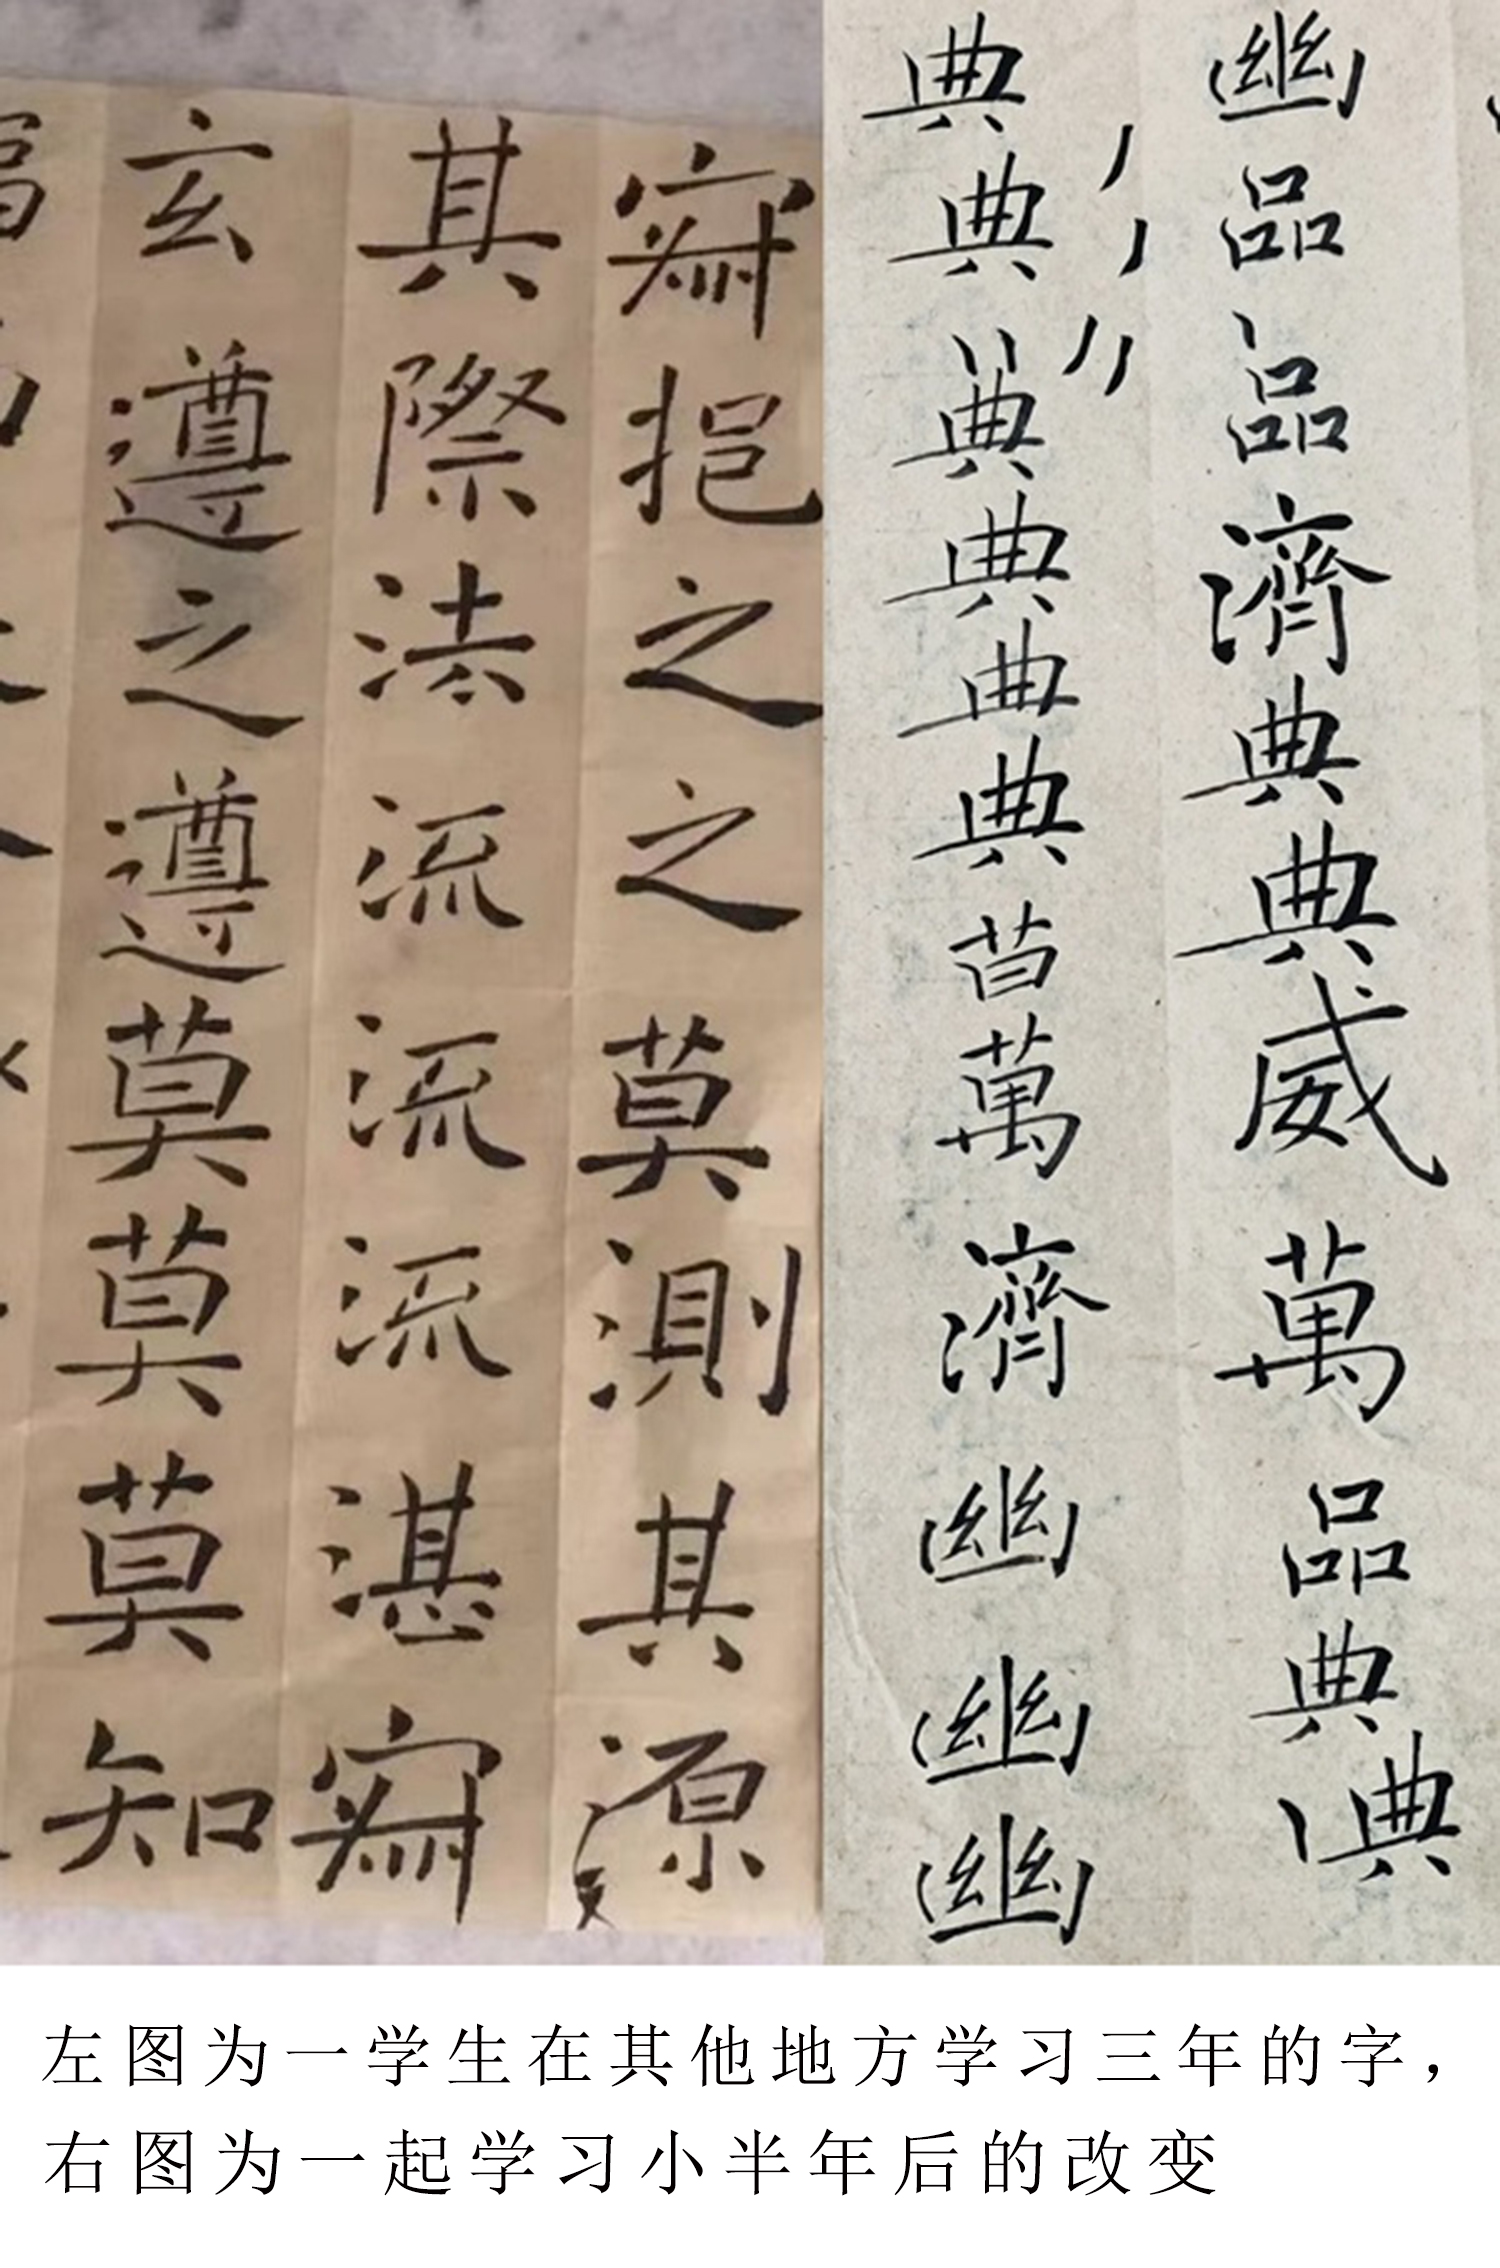 寂挹之之莫測其源
其際法流流流湛寂
玄遵之遵莫莫莫知
幽品品濟典典威萬品典典
典典典典典典萬濟幽幽幽
左图为一学生在其他地方学习三年的字，
右图为一起学习小半年后的改变